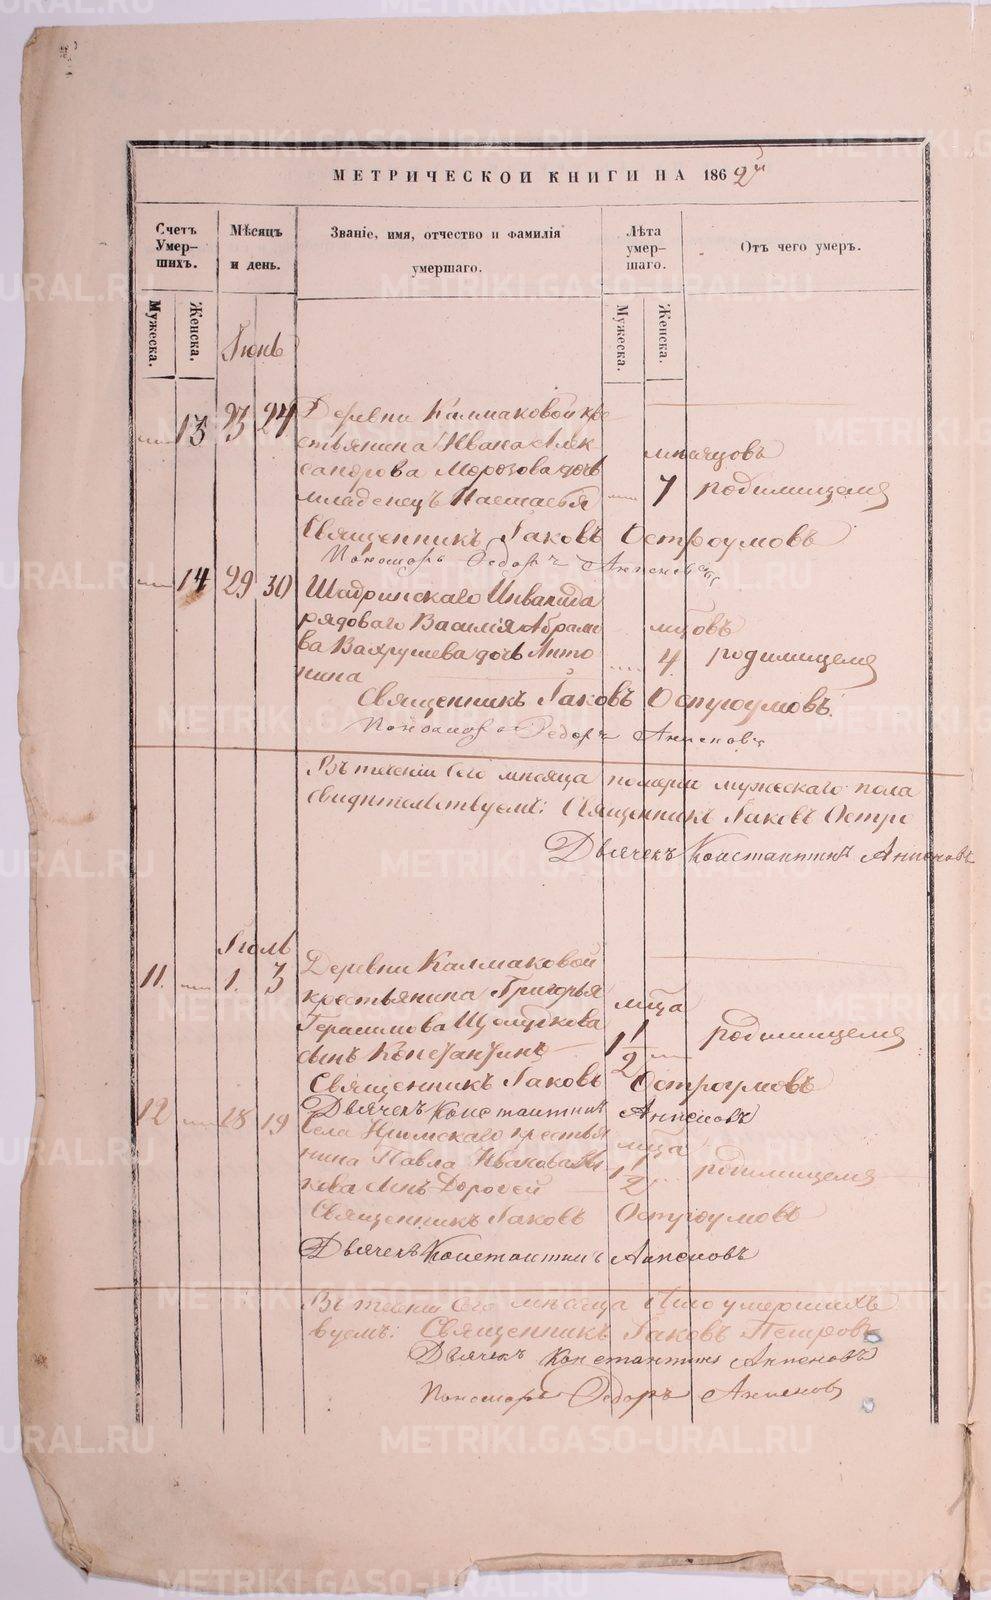 МЕТРИЧЕСКОЙ КНИГИ НА 1862й
Счетъ Умер-шихъ.
Мѣсяцъ и день.
Званіе, имя, отчество и фамилія умершаго.
Лѣта умер-шаго.
Отъ чего умеръ.
Мужеска.
Женска.
Мужеска.
Женска.
Іюнь
13 23 24 Деревни Калмаковой кре
стьянина Ивана Алек
сандрова Морозова дочь
младенецъ Настасья
мѣсяцовъ
7 родимицемя
Священникъ Іаковъ Остроумовъ
Пономарь Федоръ
14 29 30 Шадринскаго Инвалида
рядоваго Василія Абрамо
ва Вахрушева дочь Анто
нина
мцовъ
4 родимицемя
Священникъ Іаковъ Остроумовъ
Пономарь Федоръ
Въ теченіи Сего мѣсяца померли мужескаго пола
свидительствуемъ: Священникъ Іаковъ Остро
Дьячекъ Константинъ
Іюль
11. 1. 3 Деревни Калмаковой
крестьянина Григорья
Герасимова
сынъ Константинъ
мца
1 1/2
родимицемя
Священникъ Іаковъ Остроумовъ
Дьячекъ Константинъ
12 18 19 Села крестья
нина Павла Иванова
кова сынъ Дорофей
мца
1 1/2
родимицемя
Священникъ Іаковъ Остроумовъ
Дьячекъ Константинъ
Въ теченіи Сего мѣсяца умершихъ
вуемъ: Священникъ Іаковъ Петровъ
Дьячекъ Константинъ
Пономарь Федоръ
METRIKI.GASO-URAL.RU